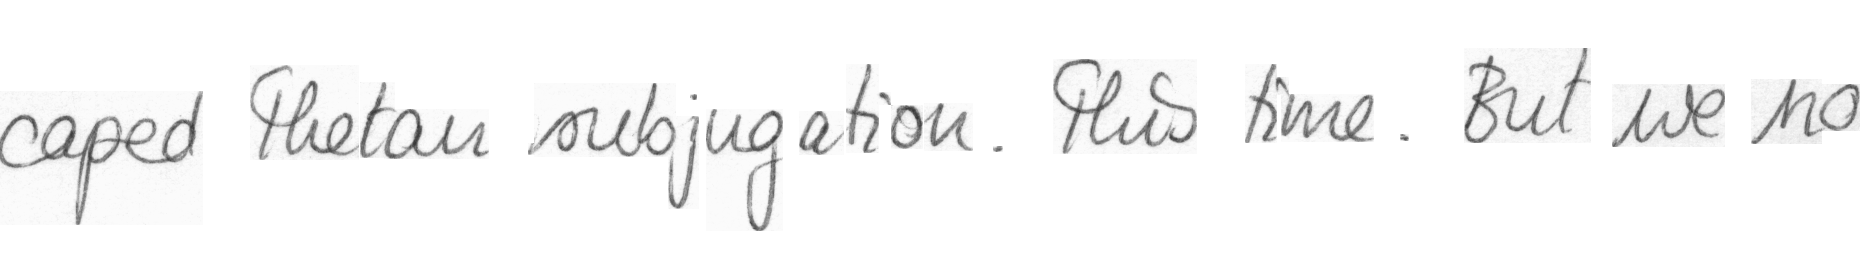 caped Thetan subjugation. This time. But we no